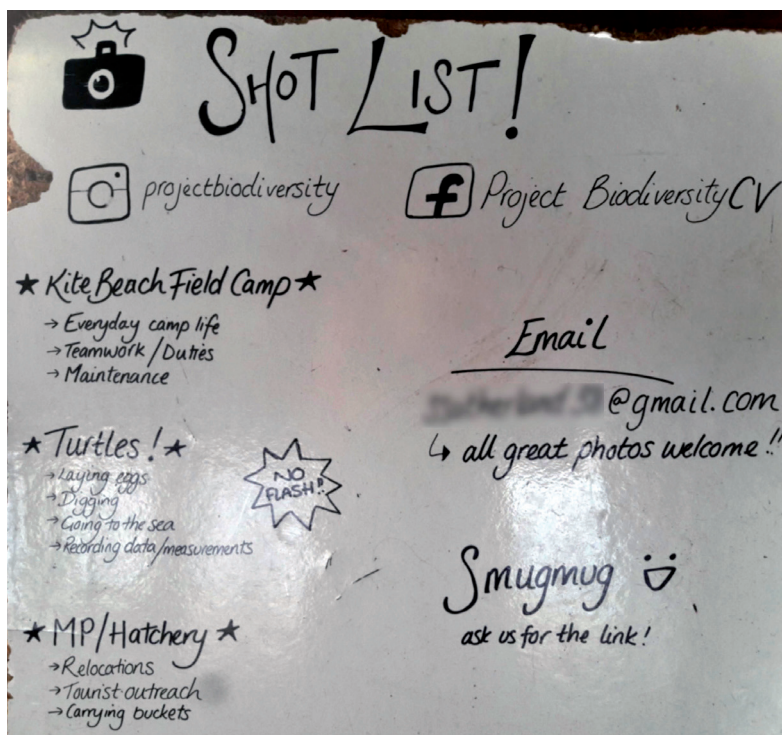 SHOT LIST!
projectbiodiversity
f Project BiodiversityCV
★ Kite Beach Field Camp ★
→ Everyday camp life
→ Teamwork/Duties
→ Maintenance
★ Turtles! ★
→ Laying eggs
→ Digging
→ Going to the sea
→ Recording data/measurements
NO
FLASH!!
★ MP/Hatchery ★
→ Relocations
→ Tourist outreach
→ Carrying buckets
Email
@gmail.com
↳ all great photos welcome!!
Smugmug
ask us for the link!